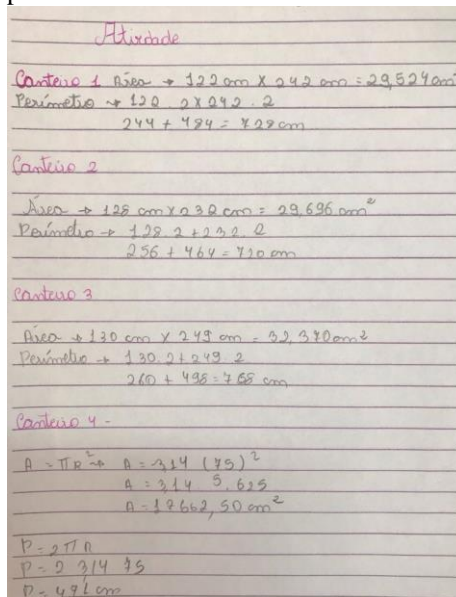 Atividade
Canteiro 1 Área → 122 cm x 242 cm = 29,524 cm²
Perímetro → 122 . 2 x 242 . 2
244 + 484 = 728 cm
Canteiro 2
Área → 128 cm x 232 cm = 29,696 cm²
Perímetro → 128 . 2 + 232 . 2
256 + 464 = 720 cm
Canteiro 3
Área → 130 cm x 249 cm = 32,370 cm²
Perímetro → 130 . 2 + 249 . 2
260 + 498 = 758 cm
Canteiro 4 -
A = πR² → A = 3,14 (75)²
A = 3,14 5.625
A = 17662,50 cm²
P = 2πR
P = 2 3,14 75
P = 471 cm